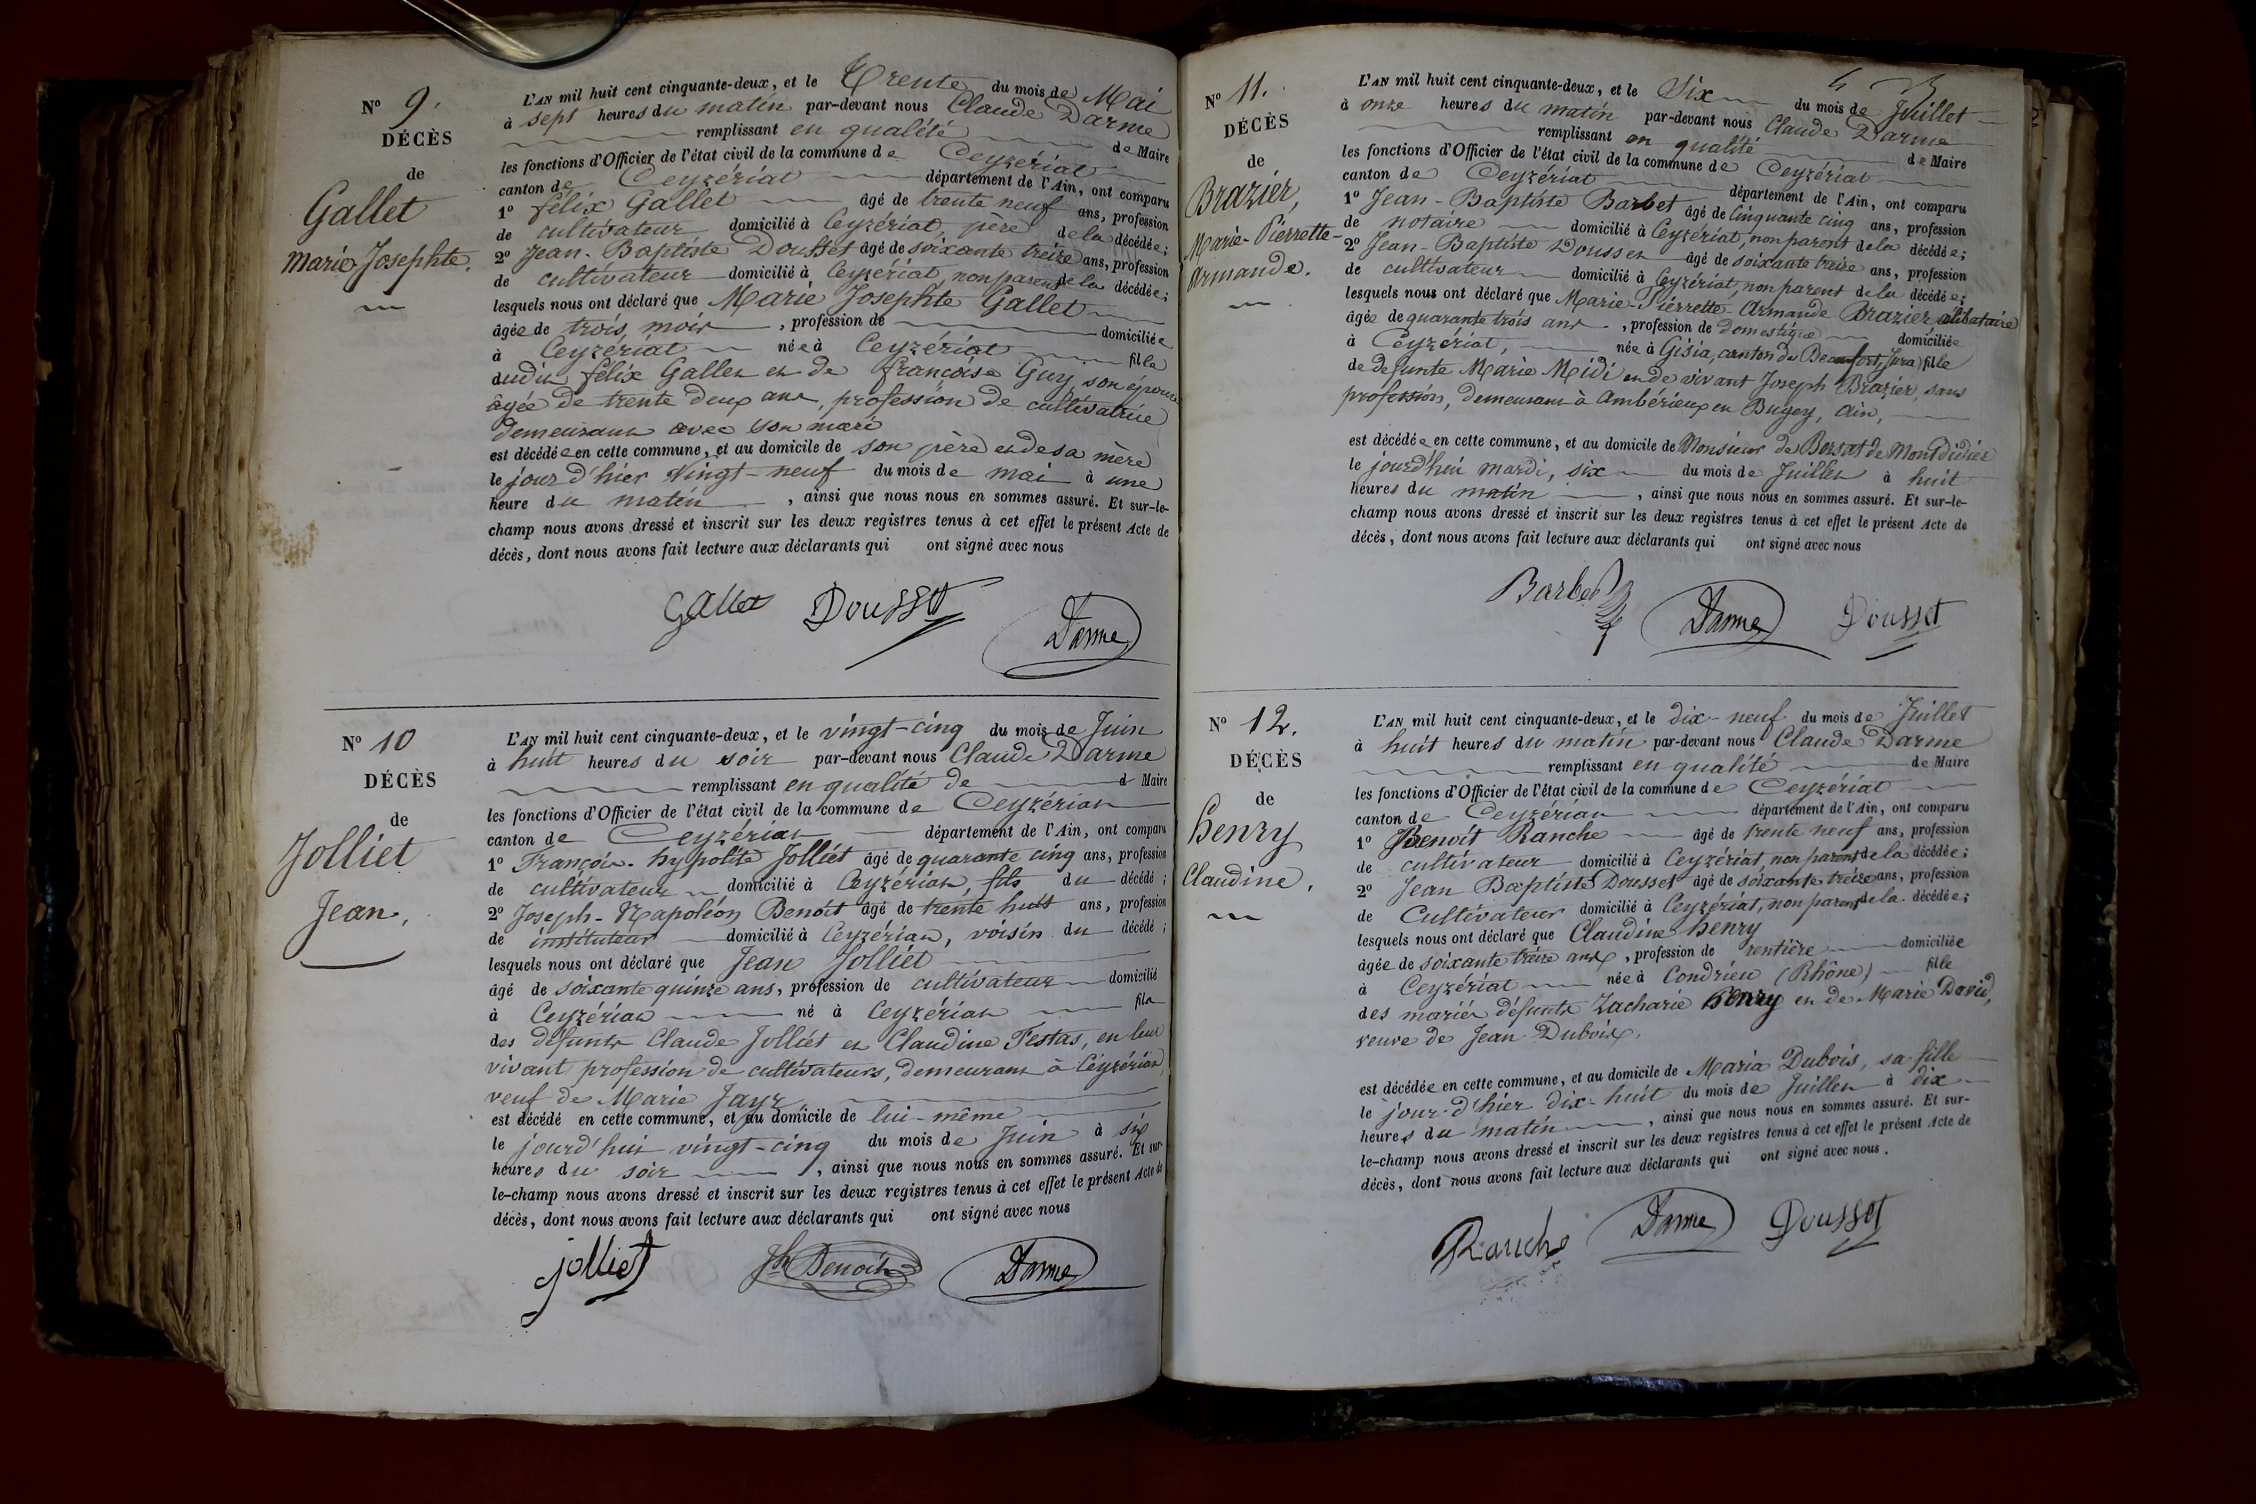 Nº 9.
DÉCÈS
de
Gallet
Marie Josephte.
L'AN mil huit cent cinquante-deux, et le Trente du mois de Mai
à sept heures du matin par-devant nous Claude Darme
remplissant en qualité de Maire
les fonctions d'Officier de l'état civil de la commune de Ceyzériat
canton de Ceyzériat département de l'Ain, ont comparu
1º félix Gallet âgé de trente neuf ans, profession
de cultivateur domicilié à Ceyzériat, père de la décédée;
2º Jean-Baptiste Dousset âgé de soixante treize ans, profession
de cultivateur domicilié à Ceyzériat, non parent de la décédée;
lesquels nous ont déclaré que Marie Josephte Gallet
âgée de trois mois, profession de domiciliée
à Ceyzériat née à Ceyzériat fille
dudit félix Gallet et de françoise Guy son épouse
âgée de trente deux ans, profession de cultivatrice
demeurant avec son mari
est décédée en cette commune, et au domicile de son père et de sa mère
le jour d'hier vingt-neuf du mois de mai à une
heure du matin, ainsi que nous nous en sommes assuré. Et sur-le-
champ nous avons dressé et inscrit sur les deux registres tenus à cet effet le présent Acte de
décès, dont nous avons fait lecture aux déclarants qui ont signé avec nous
Gallet Dousset Darme
Nº 10
DÉCÈS
de
Jolliet
Jean.
L'AN mil huit cent cinquante-deux, et le vingt-cinq du mois de Juin
à huit heures du soir par-devant nous Claude Darme
remplissant en qualité de d Maire
les fonctions d'Officier de l'état civil de la commune de Ceyzériat
canton de Ceyzériat département de l'Ain, ont comparu
1º François-hypolite Jolliet âgé de quarante cinq ans, profession
de cultivateur domicilié à Ceyzériat, fils du décédé;
2º Joseph-Napoléon Benoit âgé de trente huit ans, profession
de instituteur domicilié à Ceyzériat, voisin du décédé;
lesquels nous ont déclaré que Jean Jolliet
âgé de soixante quinze ans, profession de cultivateur domicilié
à Ceyzériat né à Ceyzériat fils
des défunts Claude Jolliet et Claudine Festas, en leur
vivant profession de cultivateurs, demeurant à Ceyzériat,
veuf de Marie Jayr
est décédé en cette commune, et au domicile de lui-même
le jourd'hui vingt-cinq du mois de Juin à six
heures du soir, ainsi que nous nous en sommes assuré. Et sur
le-champ nous avons dressé et inscrit sur les deux registres tenus à cet effet le présent Acte de
décès, dont nous avons fait lecture aux déclarants qui ont signé avec nous
Jolliet Jh Benoit Darme
Nº 11.
DÉCÈS
de
Brazier,
Marie-Pierrette-
Armande.
L'AN mil huit cent cinquante-deux, et le Six du mois de Juillet
à onze heures du matin par-devant nous Claude Darme
remplissant en qualité de Maire
les fonctions d'Officier de l'état civil de la commune de Ceyzériat
canton de Ceyzériat département de l'Ain, ont comparu
1º Jean-Baptiste Barbet âgé de Cinquante cinq ans, profession
de notaire domicilié à Ceyzériat, non parent de la décédée;
2º Jean-Baptiste Dousset âgé de soixante treize ans, profession
de cultivateur domicilié à Ceyzériat, non parent de la décédée;
lesquels nous ont déclaré que Marie-Pierrette-Armande Brazier célibataire
âgée de quarante trois ans, profession de domestique domiciliée
à Ceyzériat, née à Gisia, canton de Beaufort, (Jura) fille
de défunte Marie Midi et de vivant Joseph Brazier, sans
profession, demeurant à Ambérieux en Bugey, Ain,
est décédée en cette commune, et au domicile de Monsieur de Borsat de Montdidier
le jourd'hui mardi, six du mois de Juillet à huit
heures du matin, ainsi que nous nous en sommes assuré. Et sur-le-
champ nous avons dressé et inscrit sur les deux registres tenus à cet effet le présent Acte de
décès, dont nous avons fait lecture aux déclarants qui ont signé avec nous
Barbet Darme Dousset
Nº 12.
DÉCÈS
de
henry
Claudine.
L'AN mil huit cent cinquante-deux, et le dix-neuf du mois de Juillet
à huit heures du matin par-devant nous Claude Darme
remplissant en qualité de Maire
les fonctions d'Officier de l'état civil de la commune de Ceyzériat
canton de Ceyzériat département de l'Ain, ont comparu
1º Benoit Ranche âgé de trente neuf ans, profession
de cultivateur domicilié à Ceyzériat, non parent de la décédée;
2º Jean Baptiste Dousset âgé de soixante treize ans, profession
de Cultivateur domicilié à Ceyzériat, non parent de la décédée;
lesquels nous ont déclaré que Claudine henry
âgée de soixante treize ans, profession de rentière domiciliée
à Ceyzériat née à Condrieu (Rhône) fille
des mariés défunts Zacharie henry et de Marie David,
veuve de Jean Dubois,
est décédée en cette commune, et au domicile de Maria Dubois, sa fille
le jour-d'hier dix-huit du mois de Juillet à dix
heures du matin, ainsi que nous nous en sommes assuré. Et sur-
le-champ nous avons dressé et inscrit sur les deux registres tenus à cet effet le présent Acte de
décès, dont nous avons fait lecture aux déclarants qui ont signé avec nous.
Ranche Darme Dousset